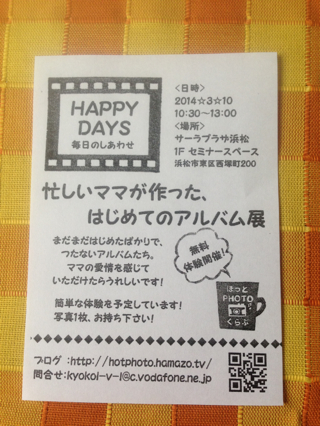 HAPPY
DAYS
毎日のしあわせ
<日時>
2014☆3☆10
10:30~13:00
<場所>
サーラプラザ浜松
1F セミナースペース
浜松市東区西塚町200
忙しいママが作った、
はじめてのアルバム展
まだまだはじめたばかりで、
つたないアルバムたち。
ママの愛情を感じて
いただけたらうれしいです!
無料
体験開催!
簡単な体験を予定しています!
写真1枚、お持ち下さい!
ほっと
PHOTO
くらぶ
ブログ :http://hotphoto.hamazo.tv/
問合せ:kyokol-v-l@c.vodafone.ne.jp